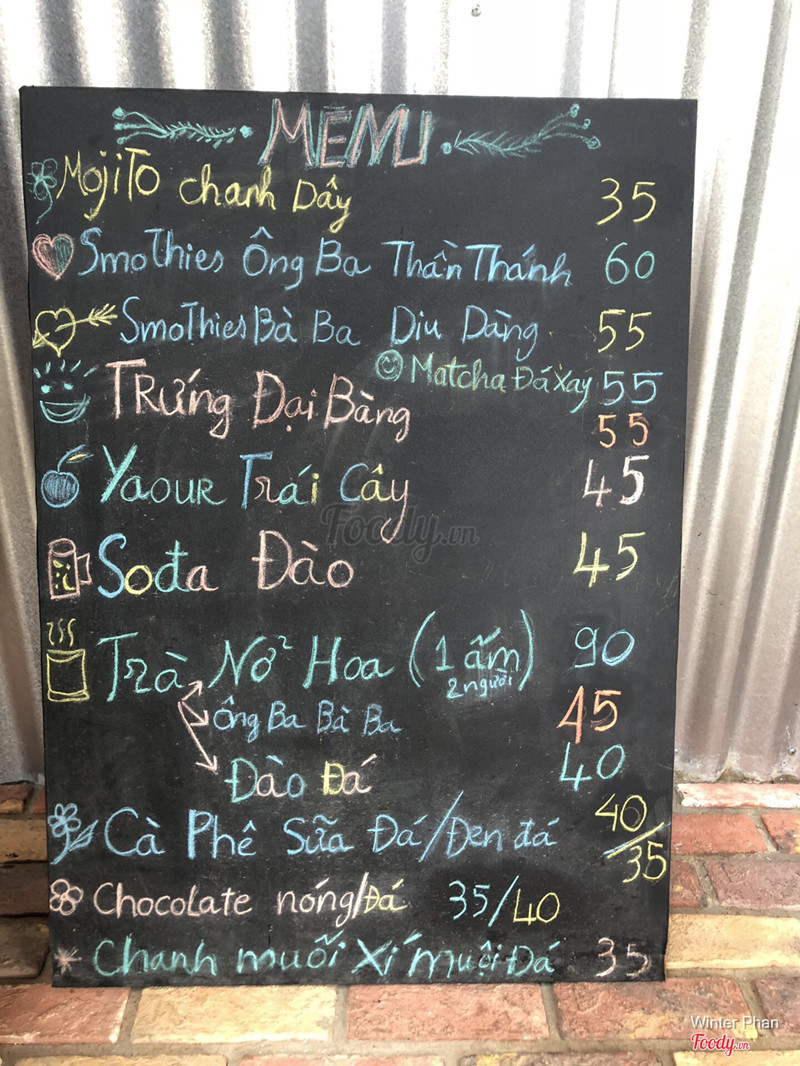 MENU
MojiTo chanh Dây 35
SmoThies Ông Ba Thần Thánh 60
SmoThies Bà Ba Diu Dàng 55
Matcha Đá Xay 55
TRứng Đại Bàng 55
Yaour Trái Cây 45
Sođa Đào 45
Trà Nở Hoa (1 ấm) 90
2 người
Ông Ba Bà Ba 45
Đào Đá 40
Cà Phê Sữa Đá/Đen đá 40/35
Chocolate nóng/Đá 35/40
Chanh muối Xí Muội Đá 35
Foody.vn
Winter Phan
Foody.vn